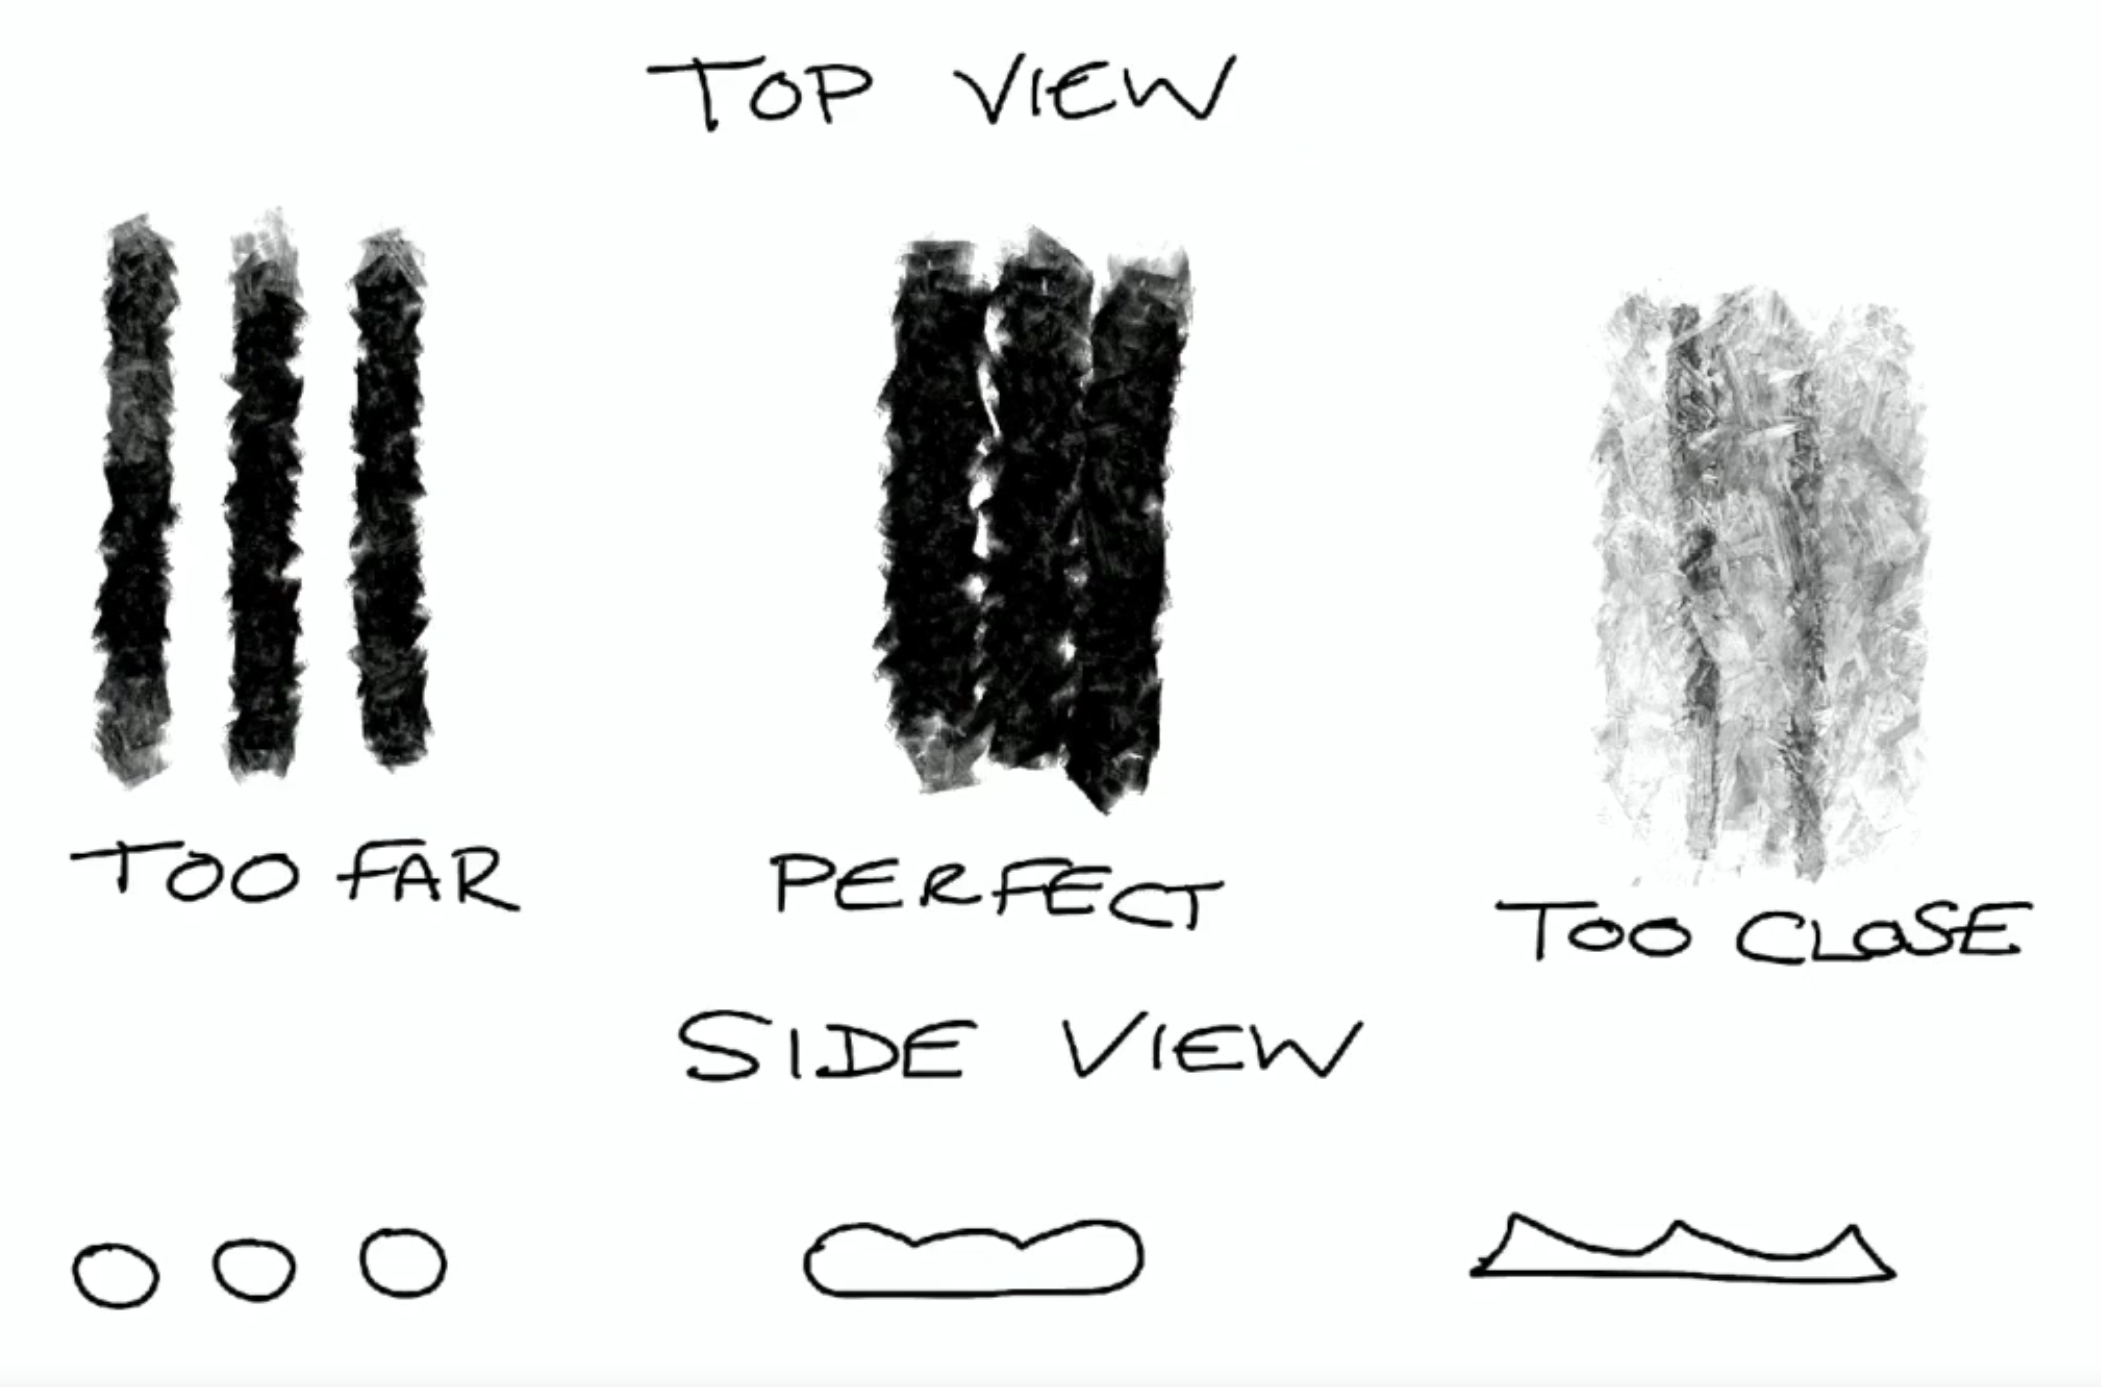 TOP VIEW
TOO FAR
PERFECT
TOO CLOSE
SIDE VIEW